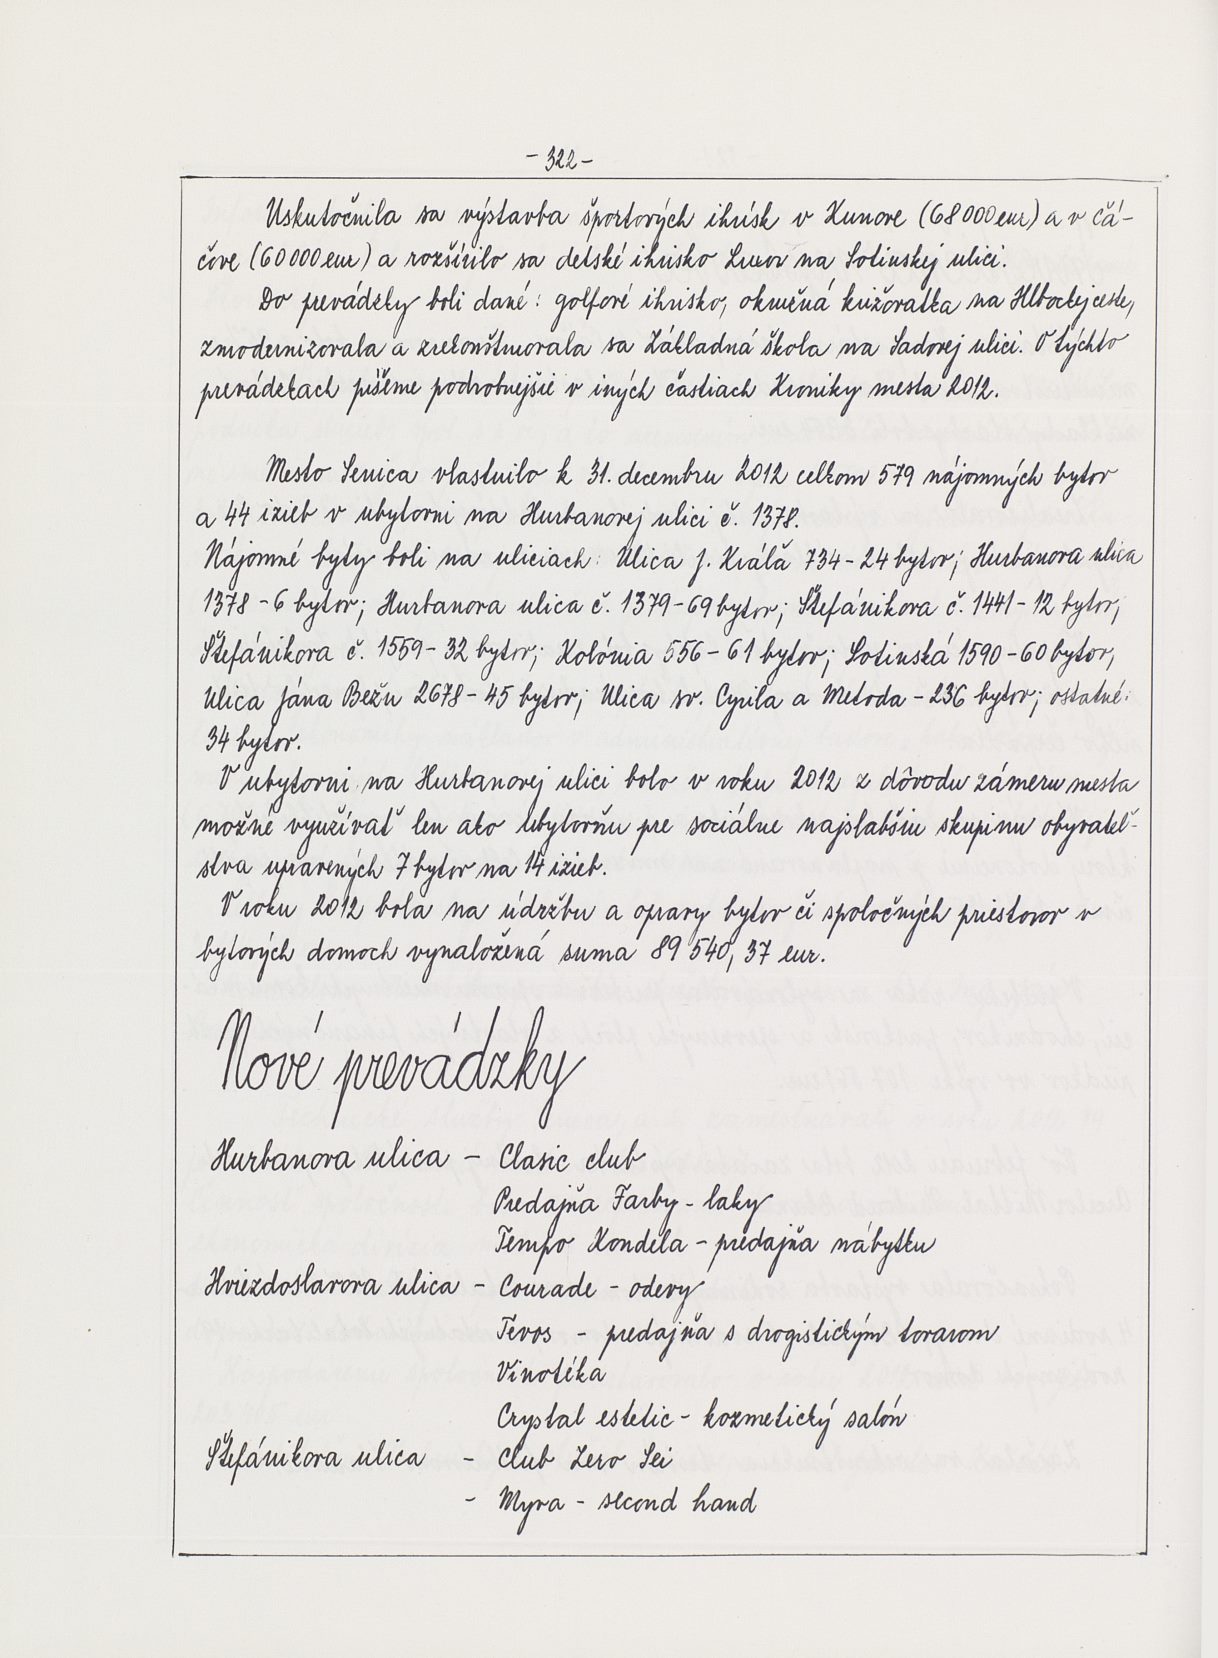 - 322 -
Uskutočnila sa výstavba športových ihrísk v Kunove (68 000 eur) a v Čá-
čove (60 000 eur) a rozšírilo sa detské ihrisko Luxov na Sotinskej ulici.
Do prevádzky boli dané: golfové ihrisko, okružná križovatka na Hlbockej ceste,
zmodernizovala a zrekonštruovala sa Základná škola na Sadovej ulici. O týchto
prevádzkach píšeme podrobnejšie v iných častiach Kroniky mesta 2012.
Mesto Senica vlastnilo k 31. decembru 2012 celkom 579 nájomných bytov
a 44 izieb v ubytovni na Hurbanovej ulici č. 1378.
Nájomné byty boli na uliciach: Ulica J. Kráľa 734 - 24 bytov; Hurbanova ulica
1378 - 6 bytov; Hurbanova ulica č. 1379 - 69 bytov; Štefánikova č. 1441 - 12 bytov;
Štefánikova č. 1559 - 32 bytov; Kolónia 556 - 61 bytov; Sotinská 1590 - 60 bytov,
Ulica Jána Bežu 2678 - 45 bytov; Ulica sv. Cyrila a Metoda - 236 bytov; ostatné:
34 bytov.
V ubytovni na Hurbanovej ulici bolo v roku 2012 z dôvodu zámeru mesta
možné využívať len ako ubytovňu pre sociálne najslabšiu skupinu obyvateľ-
stva upravených 7 bytov na 14 izieb.
V roku 2012 bola na údržbu a opravy bytov či spoločných priestorov v
bytových domoch vynaložená suma 89 540, 37 eur.
Nové prevádzky
Hurbanova ulica - Clasic club
Predajňa Farby - laky
Tempo Kondela - predajňa nábytku
Hviezdoslavova ulica - Courade - odevy
Tevos - predajňa s drogistickým tovarom
Vinotéka
Crystal estetic - kozmetický salón
Štefánikova ulica - Club Zero Sei
- Myra - second hand